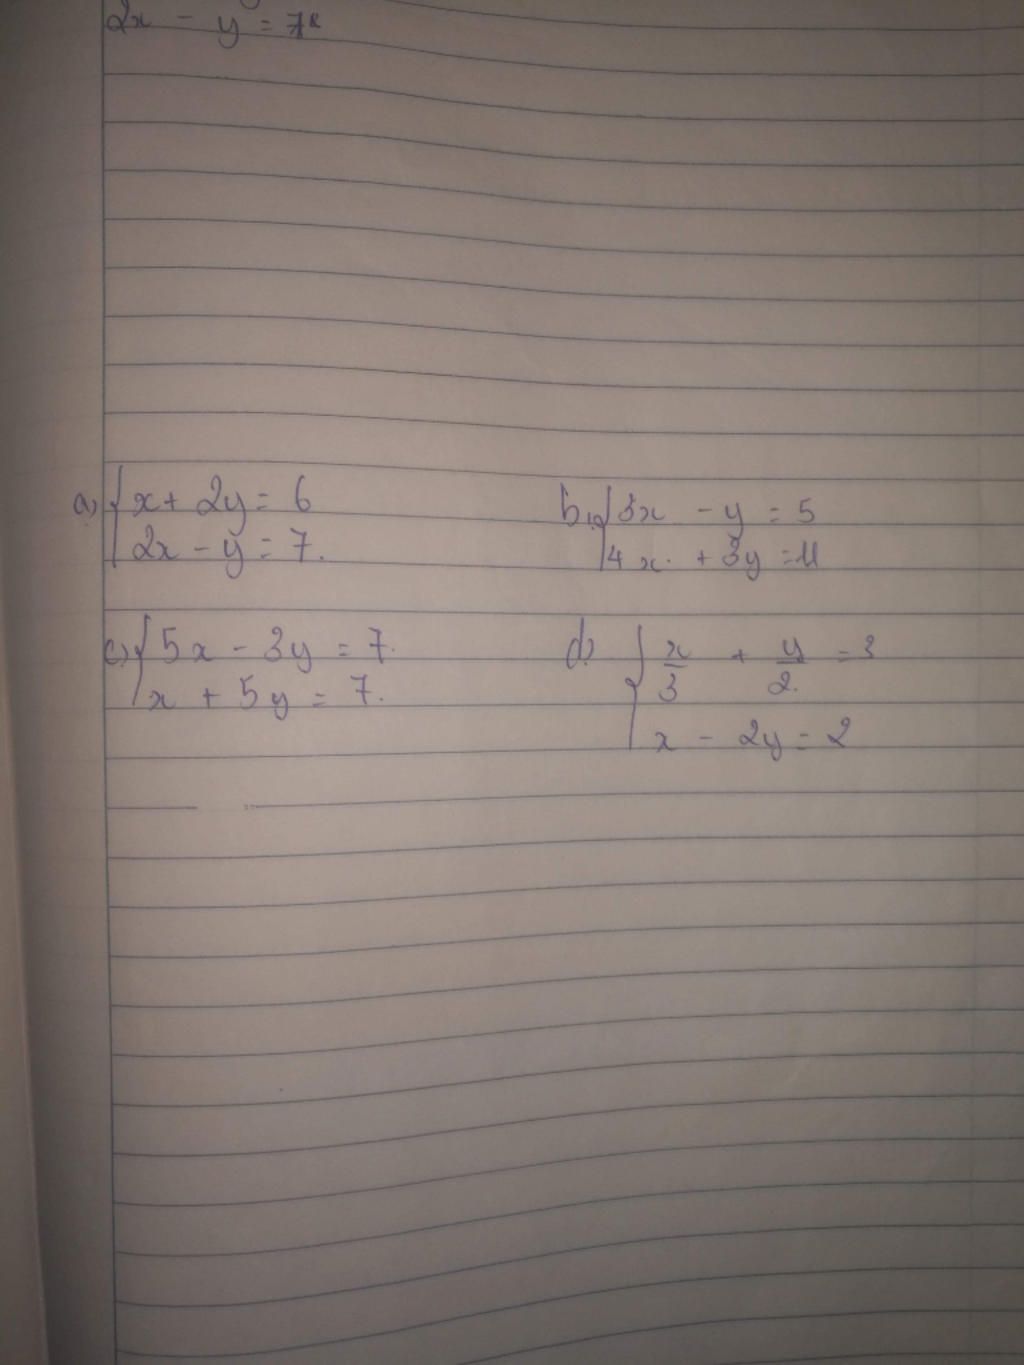 2x - y = 7
a) { x + 2y = 6
2x - y = 7.
b) { 3x - y = 5
4x + 3y = 11
c) { 5x - 3y = 7.
x + 5y = 7.
d) { x/3 + y/2 = 3
x - 2y = 2